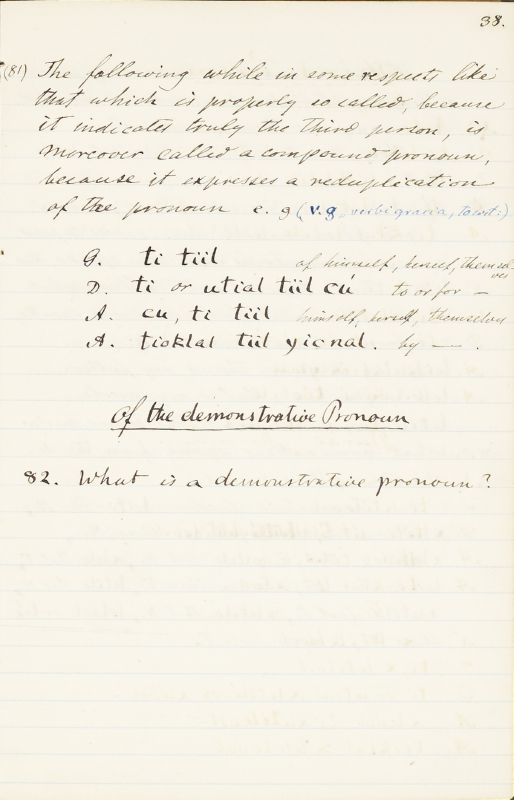 38.
(81) The following while in some respects like
that which is properly so called, because
it indicates truly the third person, is
moreover called a compound pronoun,
because it expresses a reduplication
of the pronoun e. g (v.g. verbi gracia, to wit:)
G. ti tiil of himself, herself, themselves
D. ti or utial tiil cú to or for —
A. cu, ti tiil himself, herself, themselves
A. tioklal tiil yicnal. by —— .
Of the demonstrative Pronoun
82. What is a demonstrative pronoun?